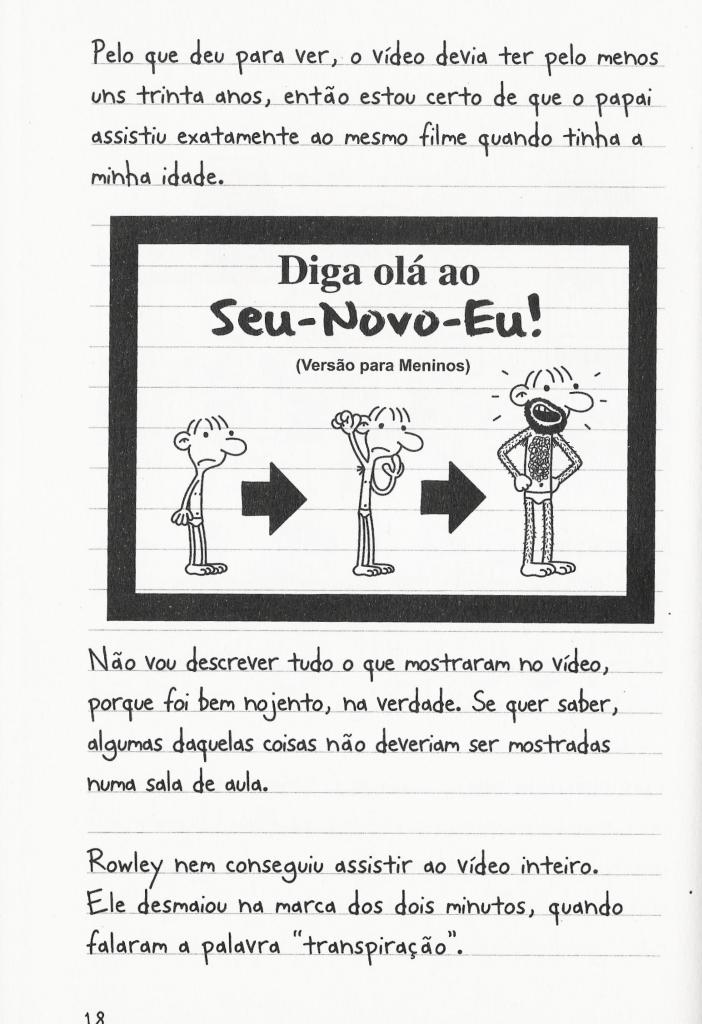 Pelo que deu para ver, o vídeo devia ter pelo menos
uns trinta anos, então estou certo de que o papai
assistiu exatamente ao mesmo filme quando tinha a
minha idade.
Diga olá ao
Seu-Novo-Eu!
(Versão para Meninos)
Não vou descrever tudo o que mostraram no vídeo,
porque foi bem nojento, na verdade. Se quer saber,
algumas daquelas coisas não deveriam ser mostradas
numa sala de aula.
Rowley nem conseguiu assistir ao vídeo inteiro.
Ele desmaiou na marca dos dois minutos, quando
falaram a palavra "transpiração".
18